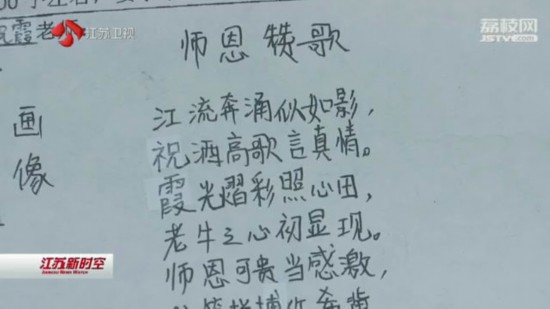 江苏卫视
荔枝网
JSTV.com
霞老师
师恩赞歌
画像
江流奔涌似如影，
祝酒高歌言真情。
霞光熠彩照心田，
老牛之心初显现。
师恩可贵当感激，
江苏新时空